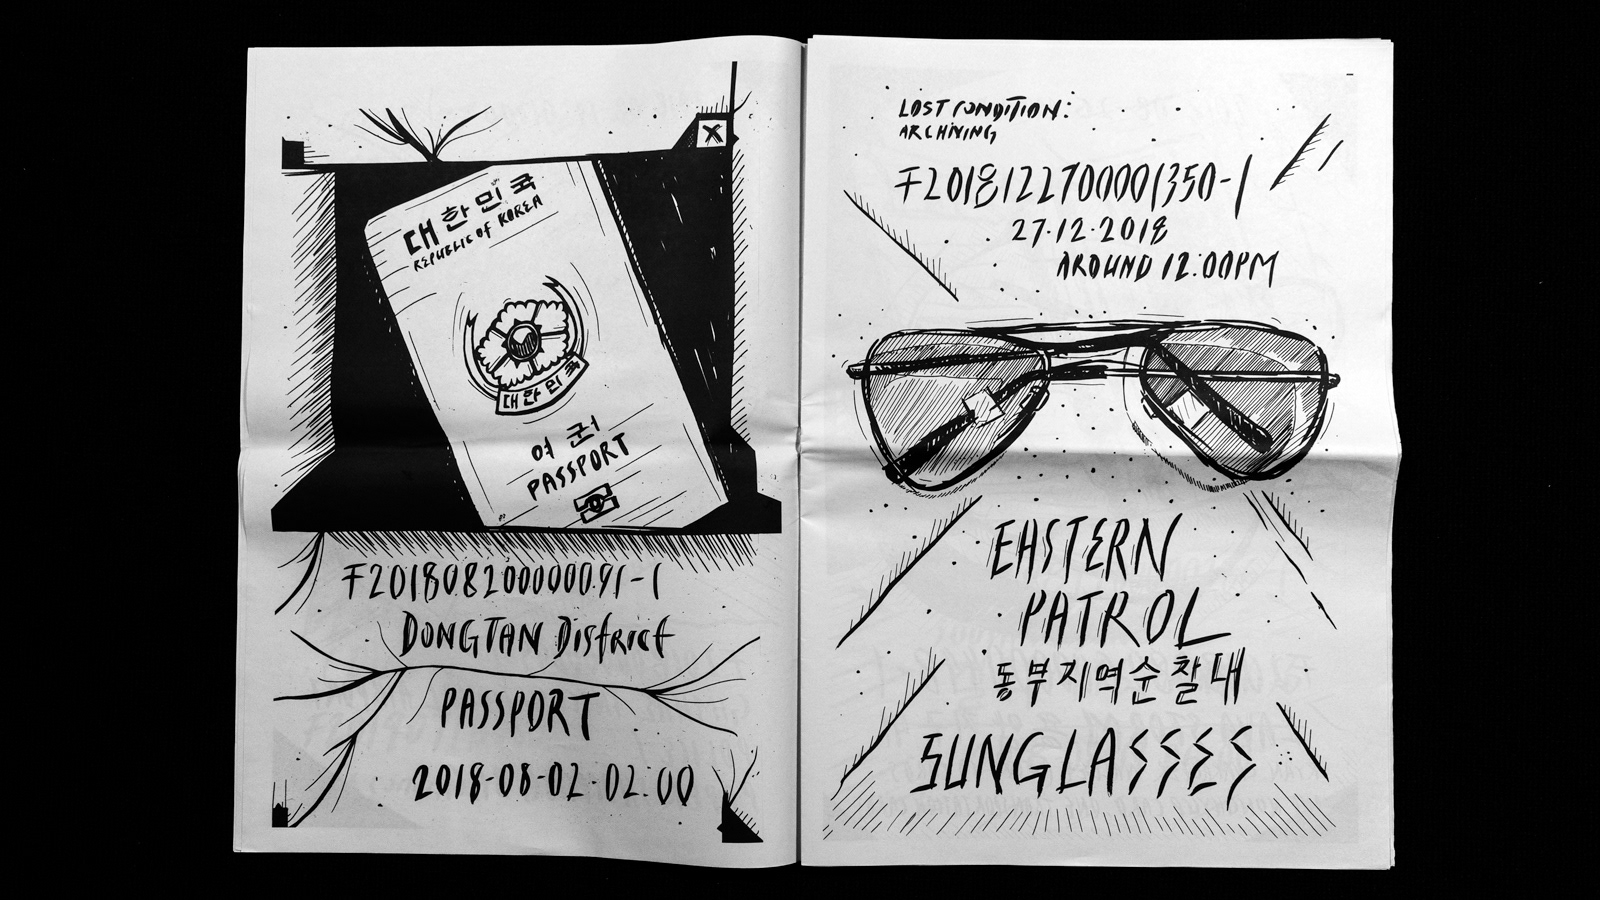 대한민국
REPUBLIC OF KOREA
대한민국
여권
PASSPORT
F2018082000000091-1
DONGTAN District
PASSPORT
2018-08-02-02:00
LOST CONDITION:
ARCHIVING
F2018122700001350-1
27.12.2018
AROUND 12:00PM
EASTERN
PATROL
동부지역순찰대
SUNGLASSES